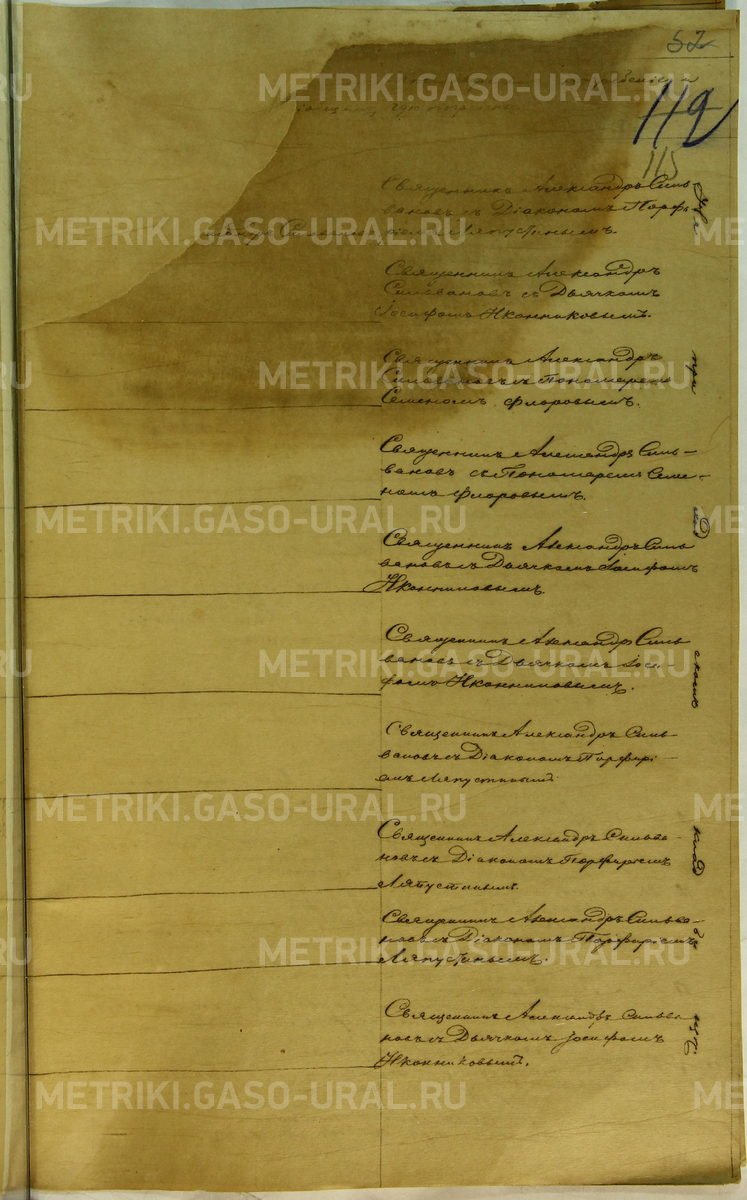 52
112
115
Священникъ Александръ Силь
вановъ съ Діакономъ Порфи
ріемъ Ляпустинымъ.
Священникъ Александръ
Сильвановъ съ Дьячкомъ
Іосифомъ Иконниковымъ.
Священникъ Александръ
Сильвановъ съ Пономаремъ
Семеномъ Флоровымъ.
Священникъ Александръ Силь-
вановъ съ Пономаремъ Семе-
номъ Флоровымъ.
Священникъ Александръ Силь
вановъ съ Дьячкомъ Іосифомъ
Иконниковымъ.
Священникъ Александръ Силь
вановъ съ Дьячкомъ Іоси-
фомъ Иконниковымъ.
Священникъ Александръ Силь-
вановъ съ Діакономъ Порфирі-
емъ Ляпустинымъ
Священникъ Александръ Сильва-
новъ съ Діакономъ Порфиріемъ
Ляпустинымъ.
Священникъ Александръ Сильва-
новъ съ Діакономъ Порфиріемъ
Ляпустинымъ.
Священникъ Александръ Сильва
новъ съ Дьячкомъ Іосифомъ
Иконниковымъ.
при
METRIKI.GASO-URAL.RU